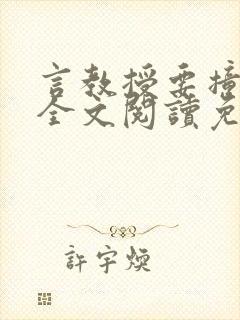 言教授要撞
全文閱讀免
許宇煥